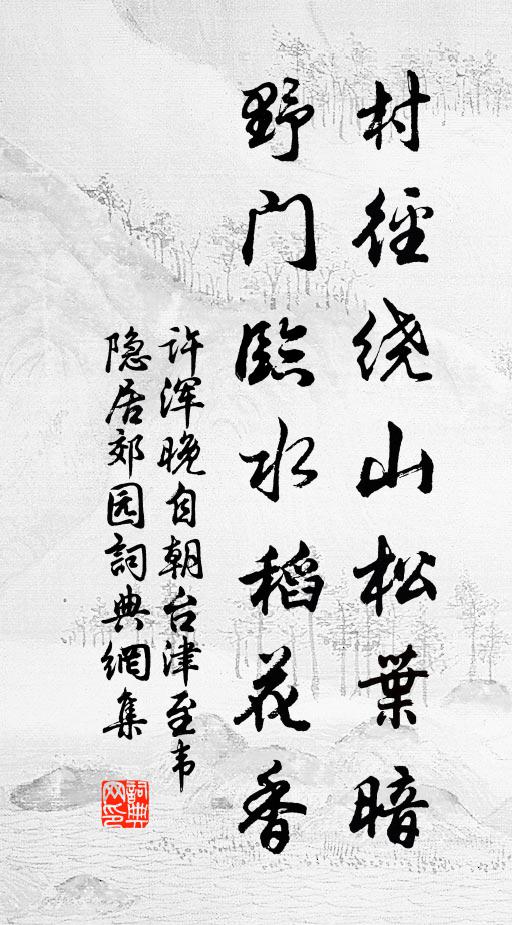 村徑绕山松葉暗
野门臨水稻花香
许浑晚自朝台津至韦
隐居郊园詞典網集
詞典
网印